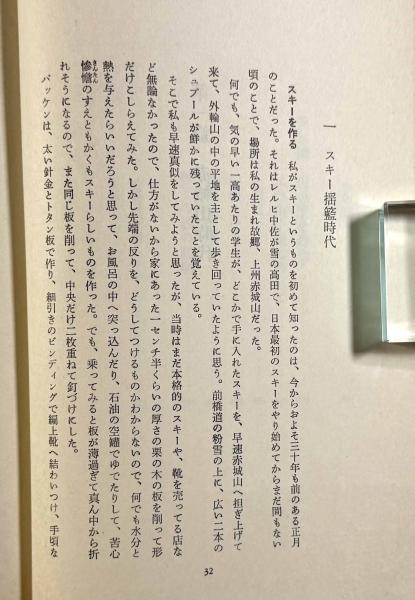 一　スキー揺籃時代
スキーを作る　私がスキーというものを初めて知ったのは、今からおよそ三十年も前のある正月
のことだった。それはレルヒ中佐が雪の高田で、日本最初のスキーをやり始めてからまだ間もない
頃のことで、場所は私の生まれ故郷、上州赤城山だった。
何でも、気の早い一高あたりの学生が、どこかで手に入れたスキーを、早速赤城山へ担ぎ上げて
来て、外輪山の中の平地を主として歩き回っていたように思う。前橋道の粉雪の上に、広い二本の
シュプールが鮮かに残っていたことを覚えている。
そこで私も早速真似をしてみようと思ったが、当時はまだ本格的のスキーや、靴を売ってる店な
ど無論なかったので、仕方がないから家にあった一センチ半くらいの厚さの栗の木の板を削って形
だけこしらえてみた。しかし先端の反りを、どうしてつけるものかわからないので、何でも水分と
熱を与えたらいいだろうと思って、お風呂の中へ突っ込んだり、石油の空罐でゆでたりして、苦心
惨憺さんたんのすえともかくもスキーらしいものを作った。でも、乗ってみると板が薄過ぎて真ん中から折
れそうになるので、また同じ板を削って、中央だけ二枚重ねて釘づけにした。
バッケンは、太い針金とトタン板で作り、細引きのビンディングで編上靴へ結わいつけ、手頃な
32